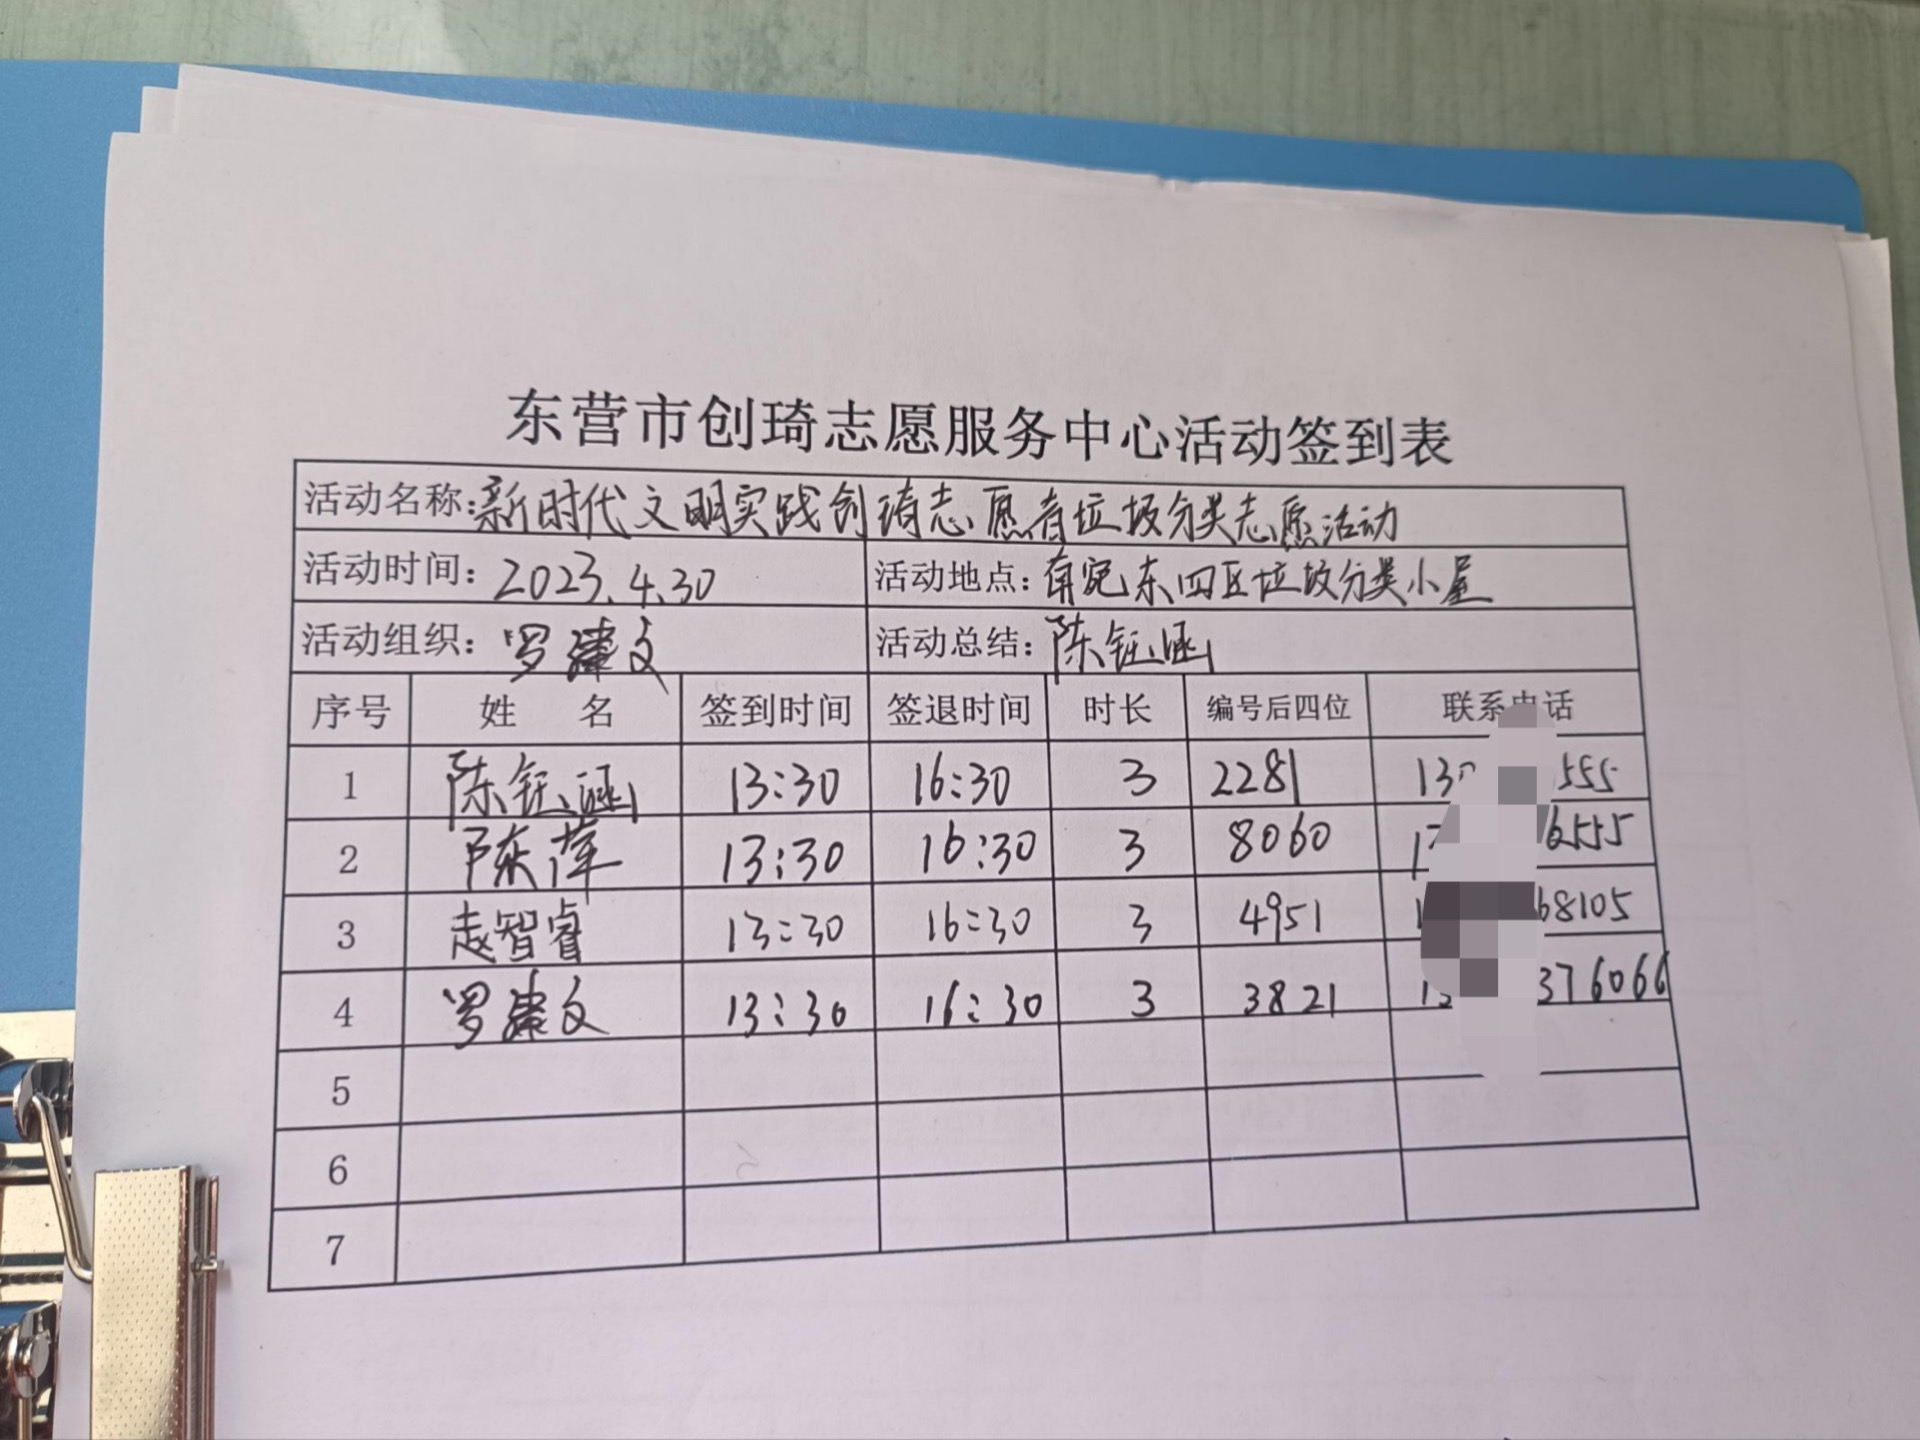 东营市创琦志愿服务中心活动签到表
活动名称:新时代文明实践创琦志愿者垃圾分类志愿活动
活动时间: 2023.4.30 活动地点: 东四区垃圾分类小屋
活动组织: 罗建文 活动总结: 陈钰涵
序号 姓 名 签到时间 签退时间 时长 编号后四位 联系电话
1 陈钰涵 13:30 16:30 3 2281 555
2 陈萍 13:30 16:30 3 8060 6555
3 赵智睿 13:30 16:30 3 4951 68105
4 罗建文 13:30 16:30 3 3821 376066
5
6
7